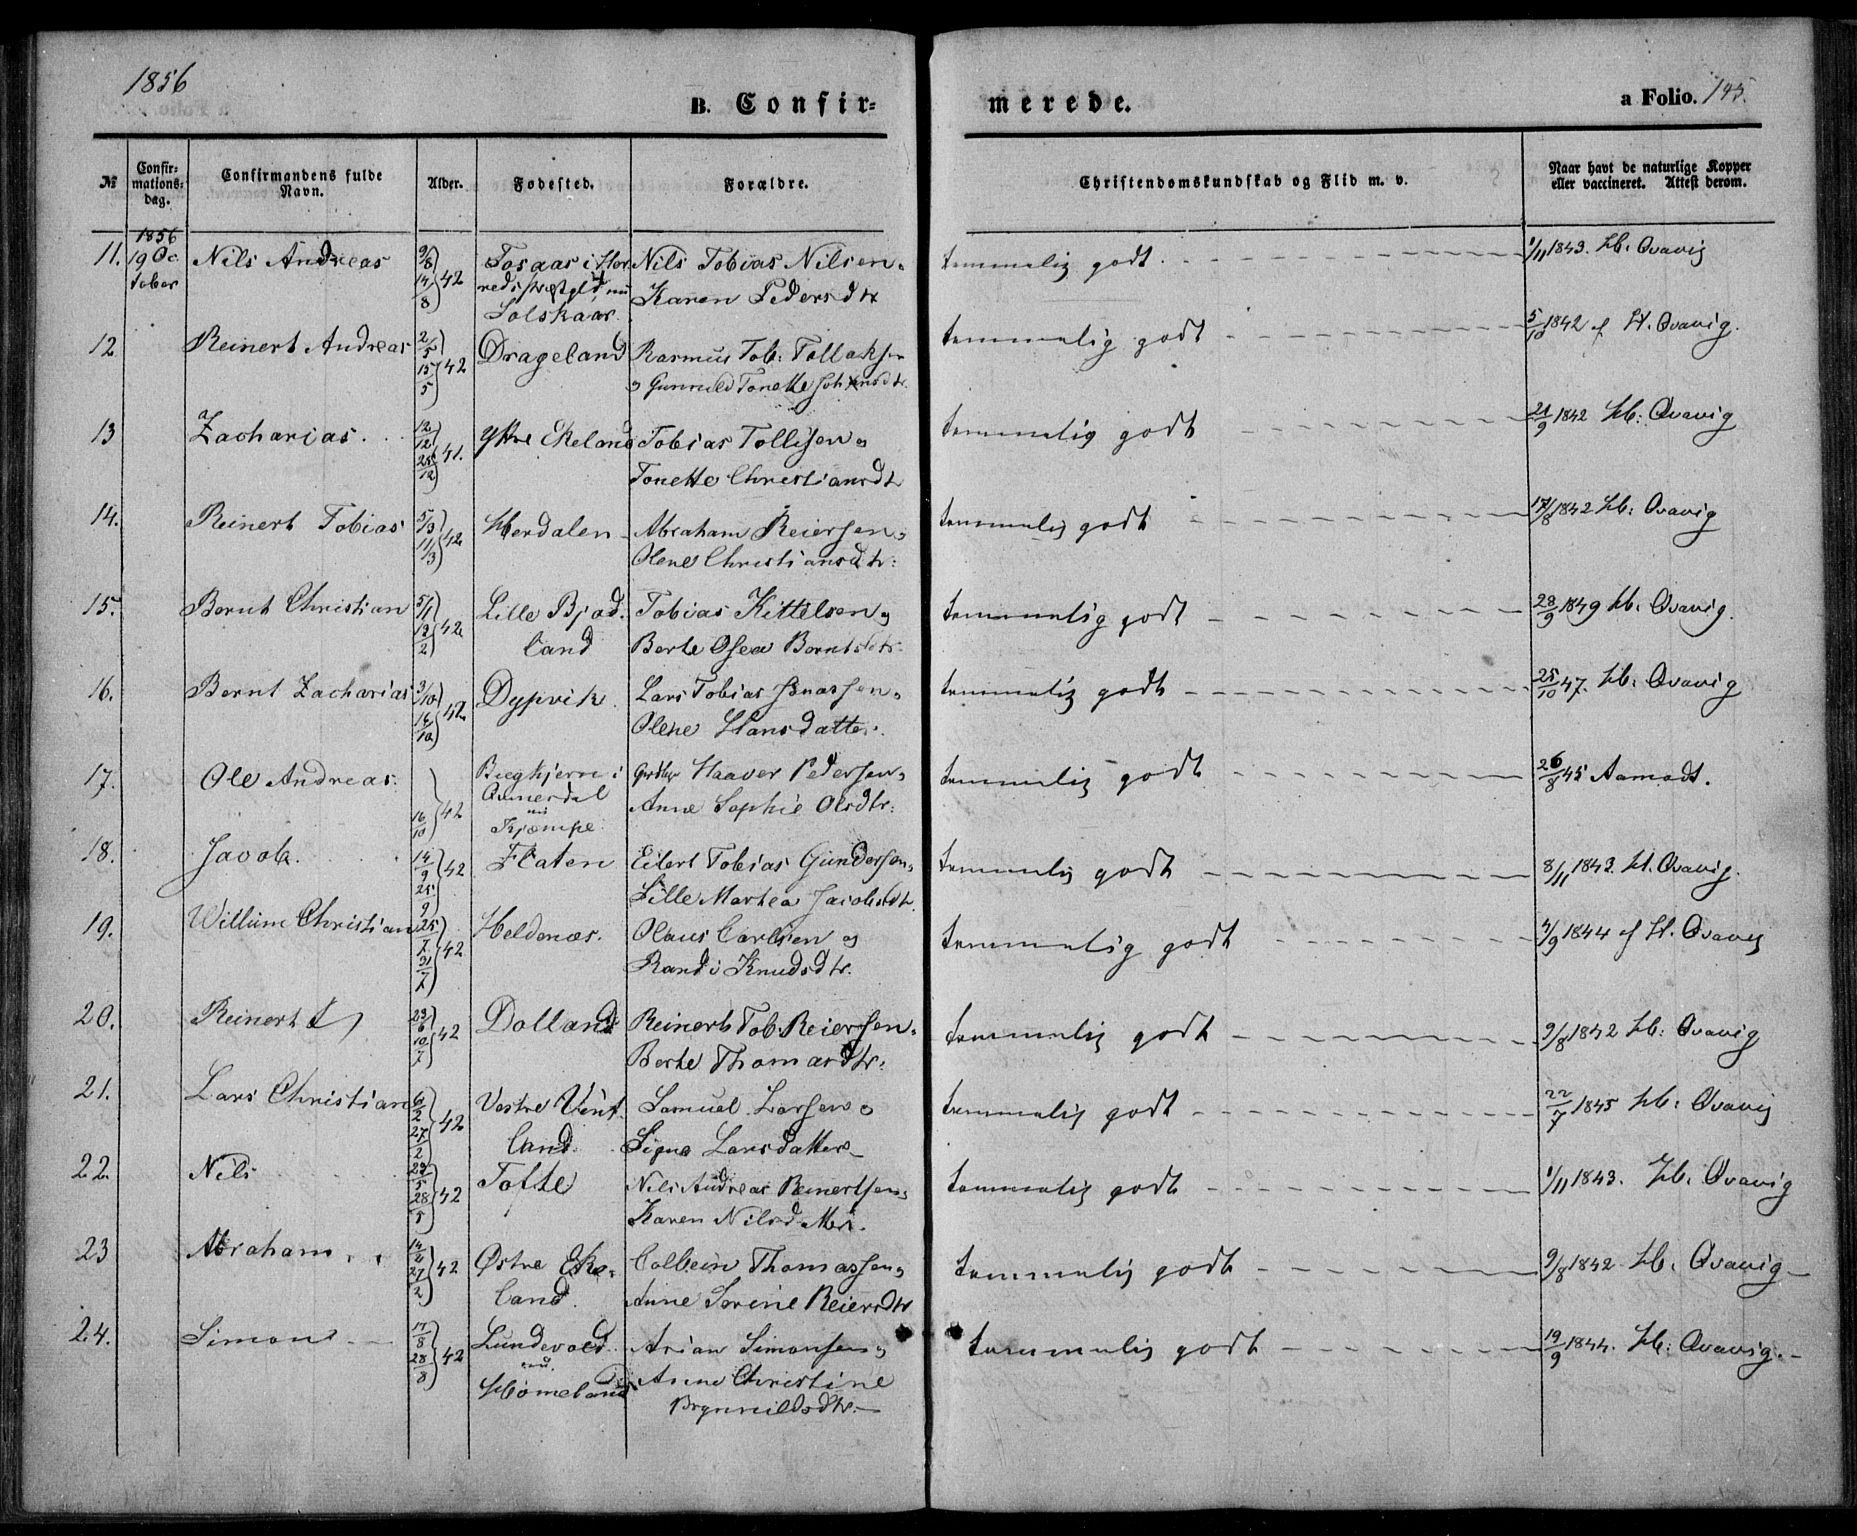 1856
B. Confir=
merede.
a Folio. 145.
№
Confir-
mations-
dag.
Confirmandens fulde
Navn.
Alder.
Fødested.
Forældre.
Christendomskundskab og Flid m. v.
Naar havt de naturlige Kopper
eller vaccineret. Attest derom.
1856
11. 19 Oc Nils Andreas 9/8 14/8 42
tober
Nils Tobias Nilsen
Karen Pedersdtr
temmelig godt
1/11 1843. Hb. Qvavig
12 Reinert Andreas 2/5 15/5 42 Drageland Rasmus Tob: Tollaksen
o Gunnuld Tonette Johnsdtr.
temmelig godt 5/10 1842 af H. Qvavig.
13 Zacharias. 12/12 25/12 41. Ytre Ekeland Tobias Tollisen og
Tonette Christiansdtr
temmelig godt 21/9 1842 Hb: Qvavig
14. Reinert Tobias 5/3 11/3 42 Herdalen Abraham Reiersen o
Olene Christiansdtr:
temmelig godt 17/8 1842 Hb: Qvavig
15. Bernt Christian 5/1 13/2 42 Lille Bjad- Tobias Kittelsen og
land Berte Osea Berntsdtr
temmelig godt 28/9 1849 Hb. Qvavig.
16. Bernt Zacharias 3/10 16/10 42 Dypvik Lars Tobias Jonassen o
Olene Hansdatter.
temmelig godt 25/10 47. Hb: Qvavig
17. Ole Andreas. 16/10 42
nu
Kjempe
Haaver Pedersen o
Anne Sophie Olsdtr:
temmelig godt 26/8 45 Aamodt.
18. Jacob. 14/9 25/9 42 Flaten Eilert Tobias Gundersen o
Lille Martea Jacobsdtr.
temmelig godt 8/11 1843. H. Qvavig.
19. Willum Christian 25/7 31/7 42 Heldenæs. Olaus Carlsen og
Randi Knudsdtr.
temmelig godt 4/9 1844 af H. Qvavig
20. Reinert 23/6 10/7 42 Dolland Reinert Tob. Reiersen o
Berte Thomasdtr.
temmelig godt 9/8 1842 Hb: Qvavig
21. Lars Christian 6/2 27/2 42 Vestre Vent- Samuel Larsen o
land Signe Larsdatter
temmelig godt 22/7 1845 Hb: Qvavig
22. Nils 23/5 28/5 42 Tofte Nils Andreas Reinertsen o
Karen Nilsdatter.
temmelig godt 1/11 1843. Hb. Qvavig
23 Abraham 42 Østre Eke- Colbein Thomassen o
land. Anne Serine Reiersdtr
temmelig godt 9/8 1842 Hb. Qvavig
24. Simon 17/8 28/8 42 Lundevold Arian Simonsen o
nu Anne Christine
Homeland Brynnildsdtr.
temmelig godt 19/9 1844. Hb: Qvavig.